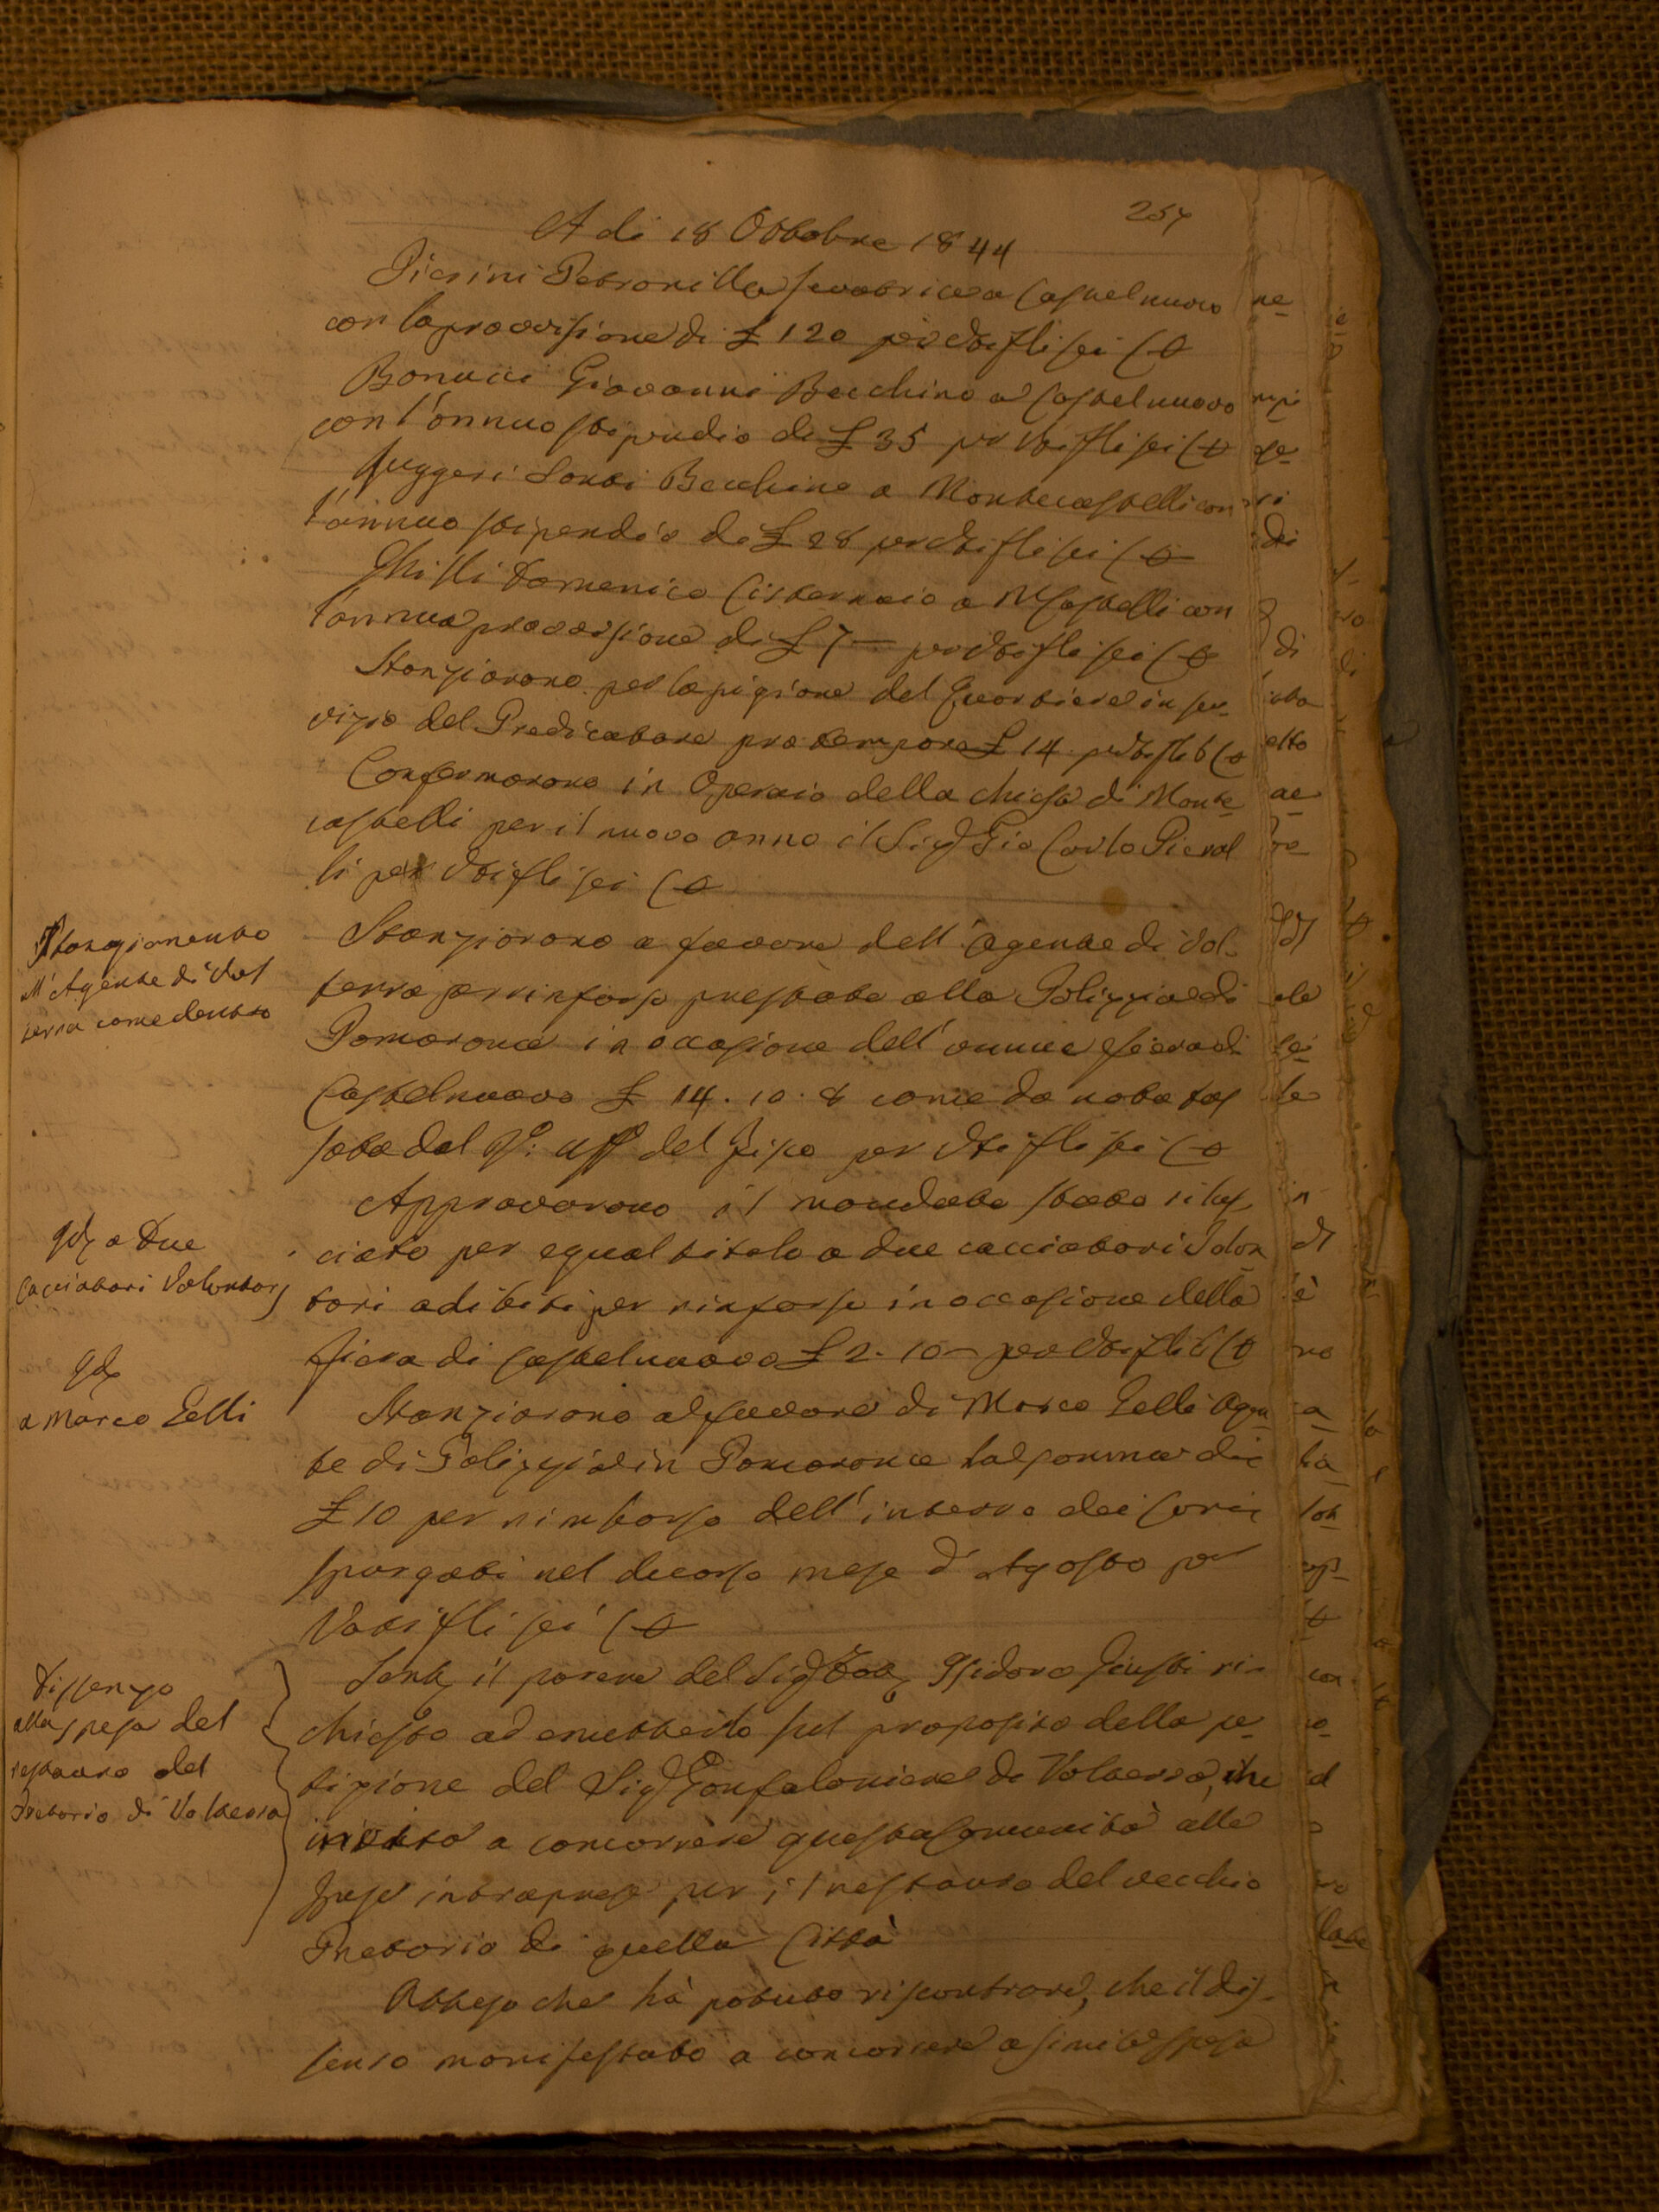 257
A di 18 Ottobre 1844
Pierini Petronilla Levatrice a Castelnuovo
con la provvisione di £ 120 per Voti fli sei C O
Bonucci Giovanni Becchino a Castelnuovo
con l'annuo stipendio di £ 35 per Voti fli sei C O
Ruggeri Santi Becchino a Montecastelli con
l'annuo stipendio di £ 28 per Voti fli sei C O
Ghilli Domenico Cisternaio a MCastelli con
l'annua provvisione di £ 7— per Voti fli sei C O
Stanziarono per la pigione del Quartiere in ser-
vizio del Predicatore pro tempore £ 14. per Voti fli 6 C O
Confermarono in Operaio della chiesa di Monte
castelli per il nuovo anno il Sig Gio Carlo Pieral
li per Voti fli sei C O
Stanziamento
all'Agente di Vol
terra come contro
Stanziarono a favore dell'Agente di Vol-
terra per rinforzo prestato alla Polizzia di
Pomarance in occasione dell'annua fiera di
Castelnuovo £ 14. 10. 8 come da nota tas
sata dal del Fisco per Voti fli sei C O
a Due
Cacciatori Volontari
Approvarono il mandato stato rilas
ciato per egual titolo a due cacciatori Volon
tari adibiti per rinforzo in occasione della
fiera di Castelnuovo £ 2. 10— per Voti fli 6 C O
a Marco Lelli
Stanziarono a favore di Marco Lelli Agen
te di Polizzia in Pomarance la somma di
£ 10 per rimborso dell' dei
spurgati nel decorso mese d'Agosto per
Voti fli sei C O
Dissenzo
alla spesa del
restauro del
Pretorio di Volterra
il parere del Sig Isidoro Giusti ri-
chiesto ad emetterlo sul proposito della pe
tizione del Sig Gonfaloniere di Volterra, che
invitò a concorrere questa Comunità alle
spese intraprese per il restauro del vecchio
Pretorio di quella Città
Atteso che hà potuto riscontrare, che il dis-
senso manifestato a concorrere a simile spesa